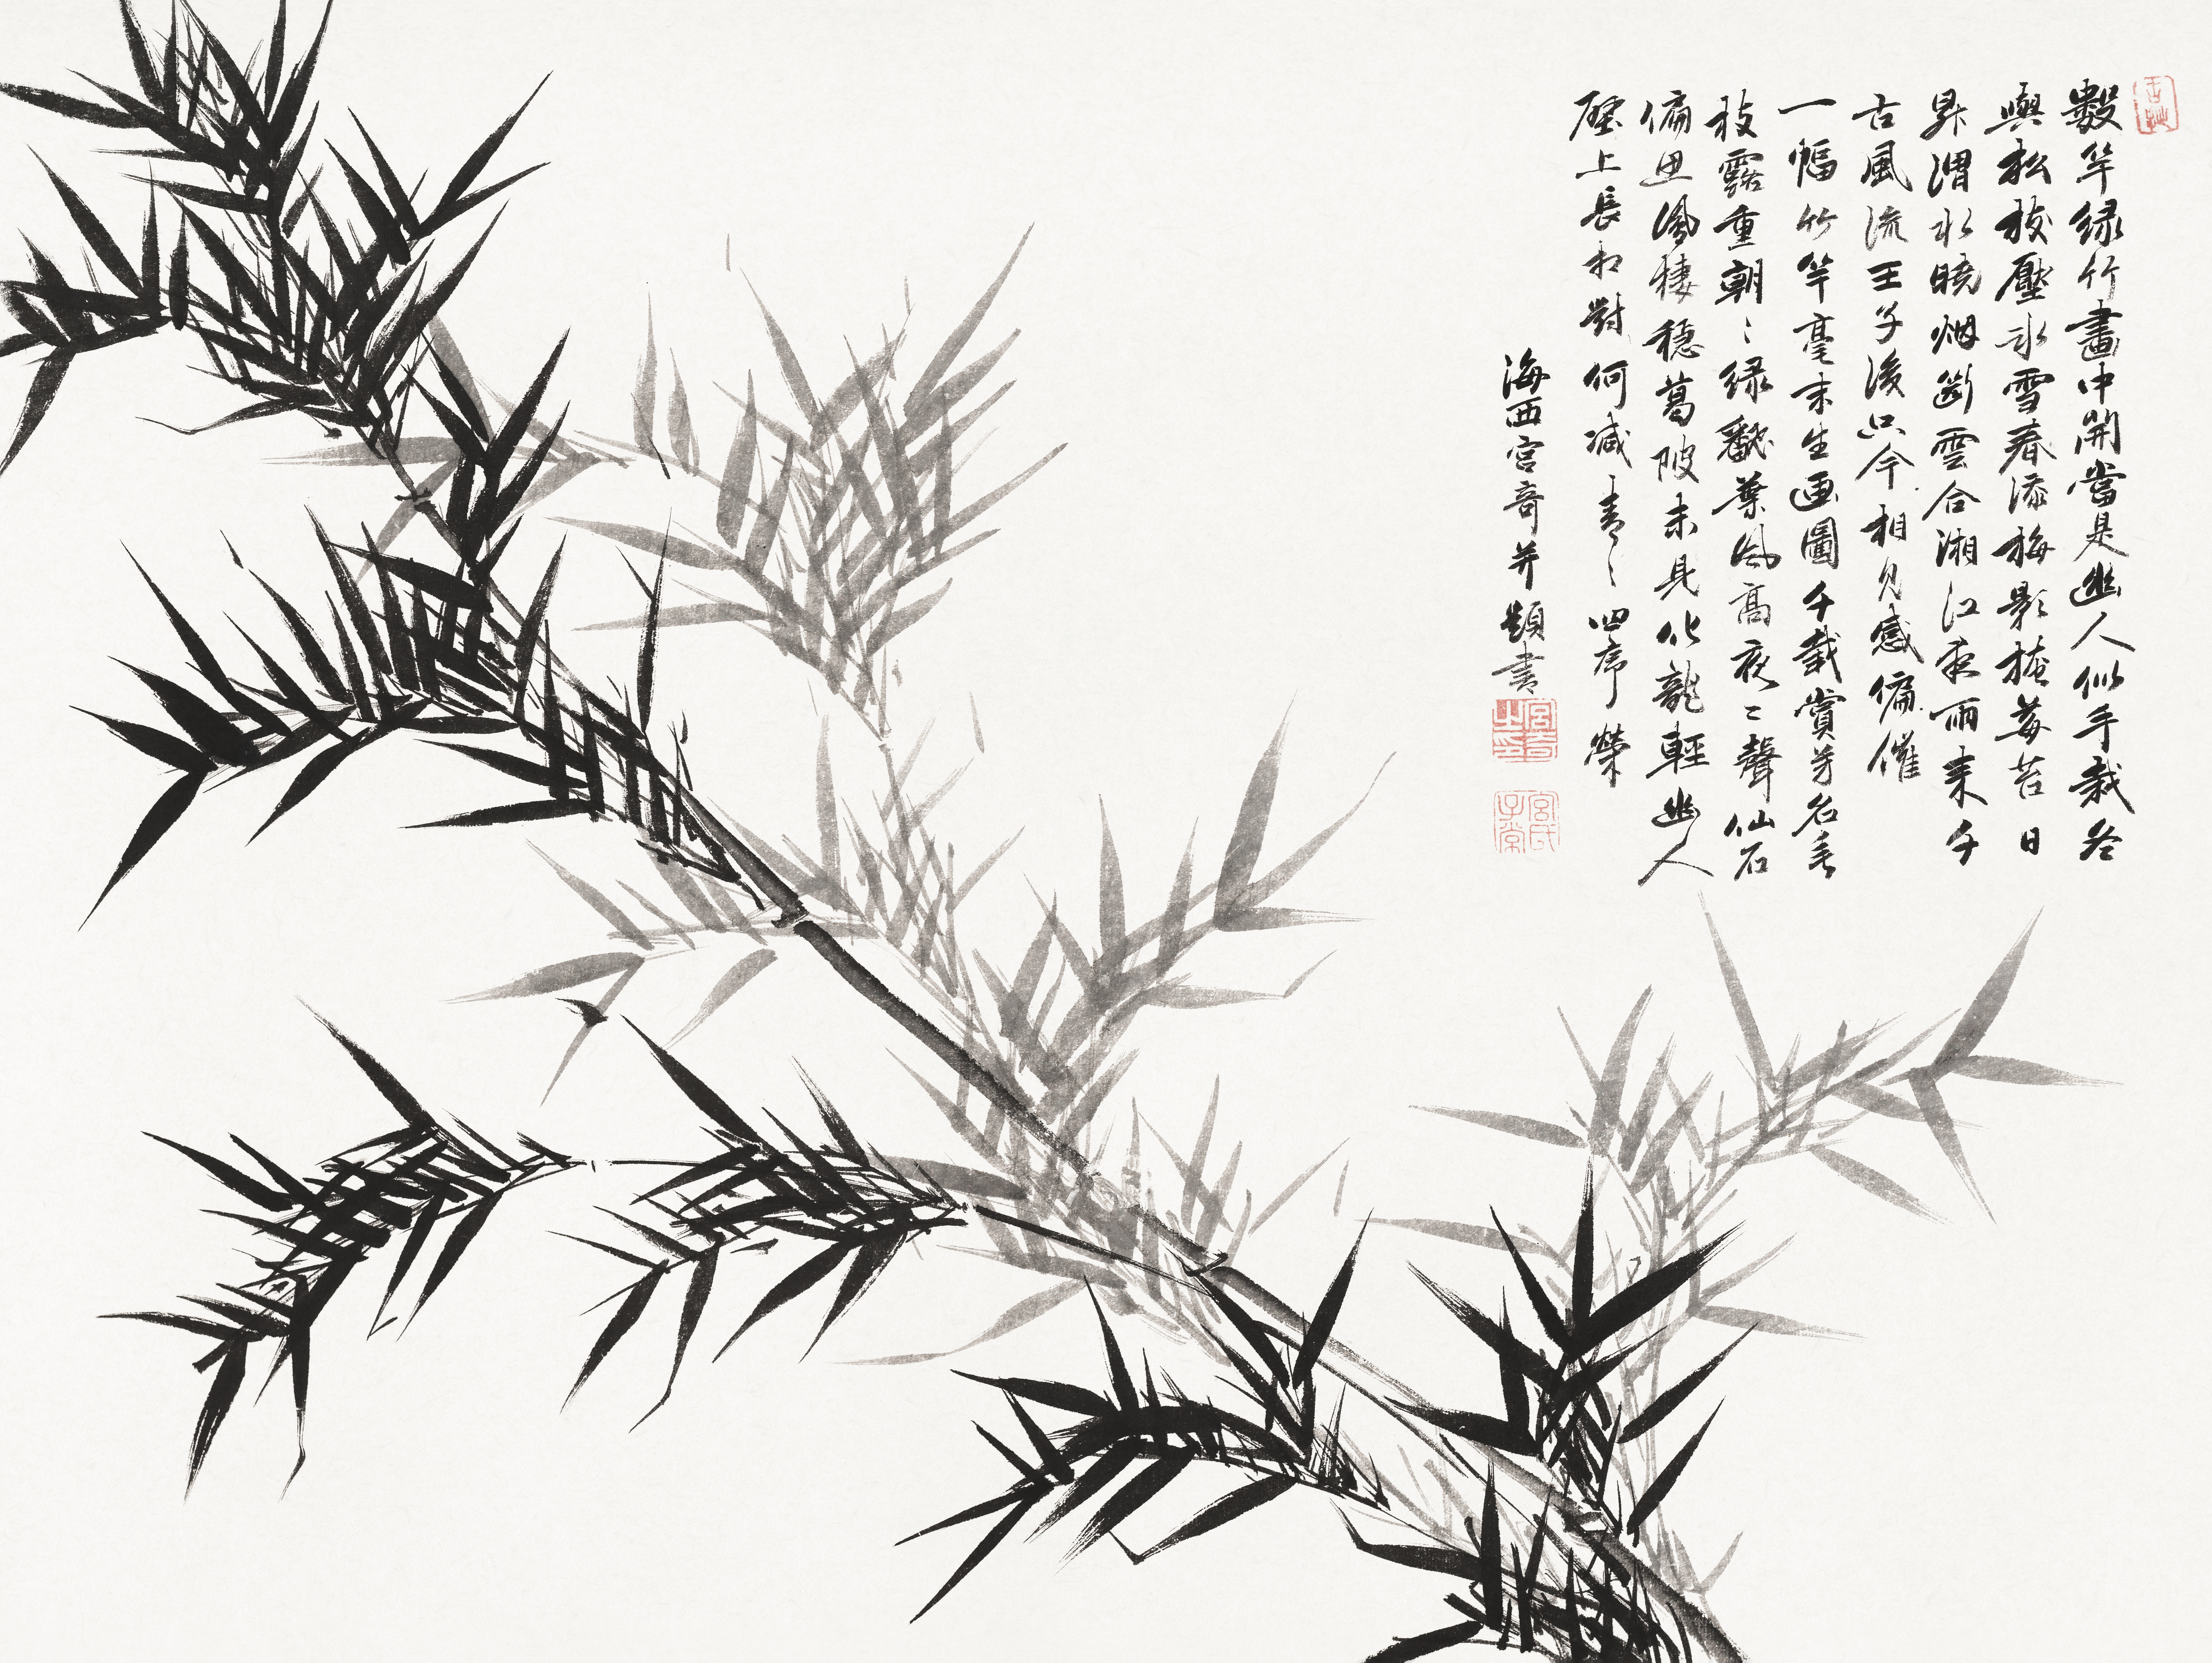 數竿绿竹畫中開當是幽人似手栽冬
與松枝壓氷雪春添梅影掩莓苔日
昇渭水曉烟斷雲合湘江夜雨来千
古風流王子後只今相見感偏催
一幅竹竿毫末生画圖千載賞芳名垂
枝露重朝〻绿翻葉風高夜〻聲仙石
偏鳳棲穩葛陂未見化龍輕幽人
壁上長相對何減青〻四序榮
海西宫奇并題書
宫奇之印
宫氏子常